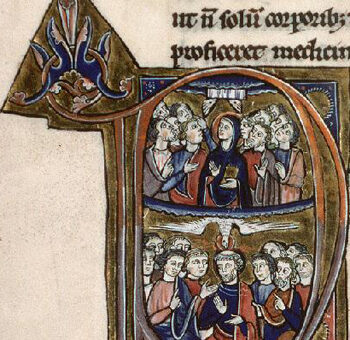 ut ñ solũ corporibꝫ
proficeret medicin